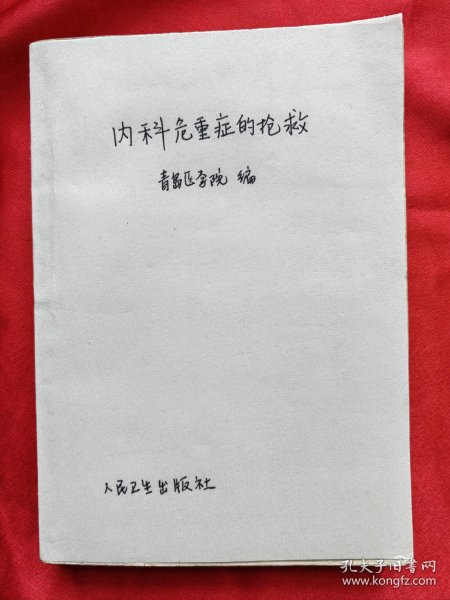 内科危重症的抢救
青岛医学院 编
人民卫生出版社
孔夫子旧书网
www.kongfz.com